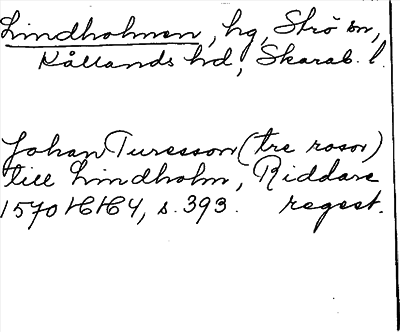 Lindholmen, hg, Strö sn,
Kållands hd, Skarab. l.
Johan Turesson (tre rosor)
till Lindholm, Riddare
1570 HH4, s. 393. regest.